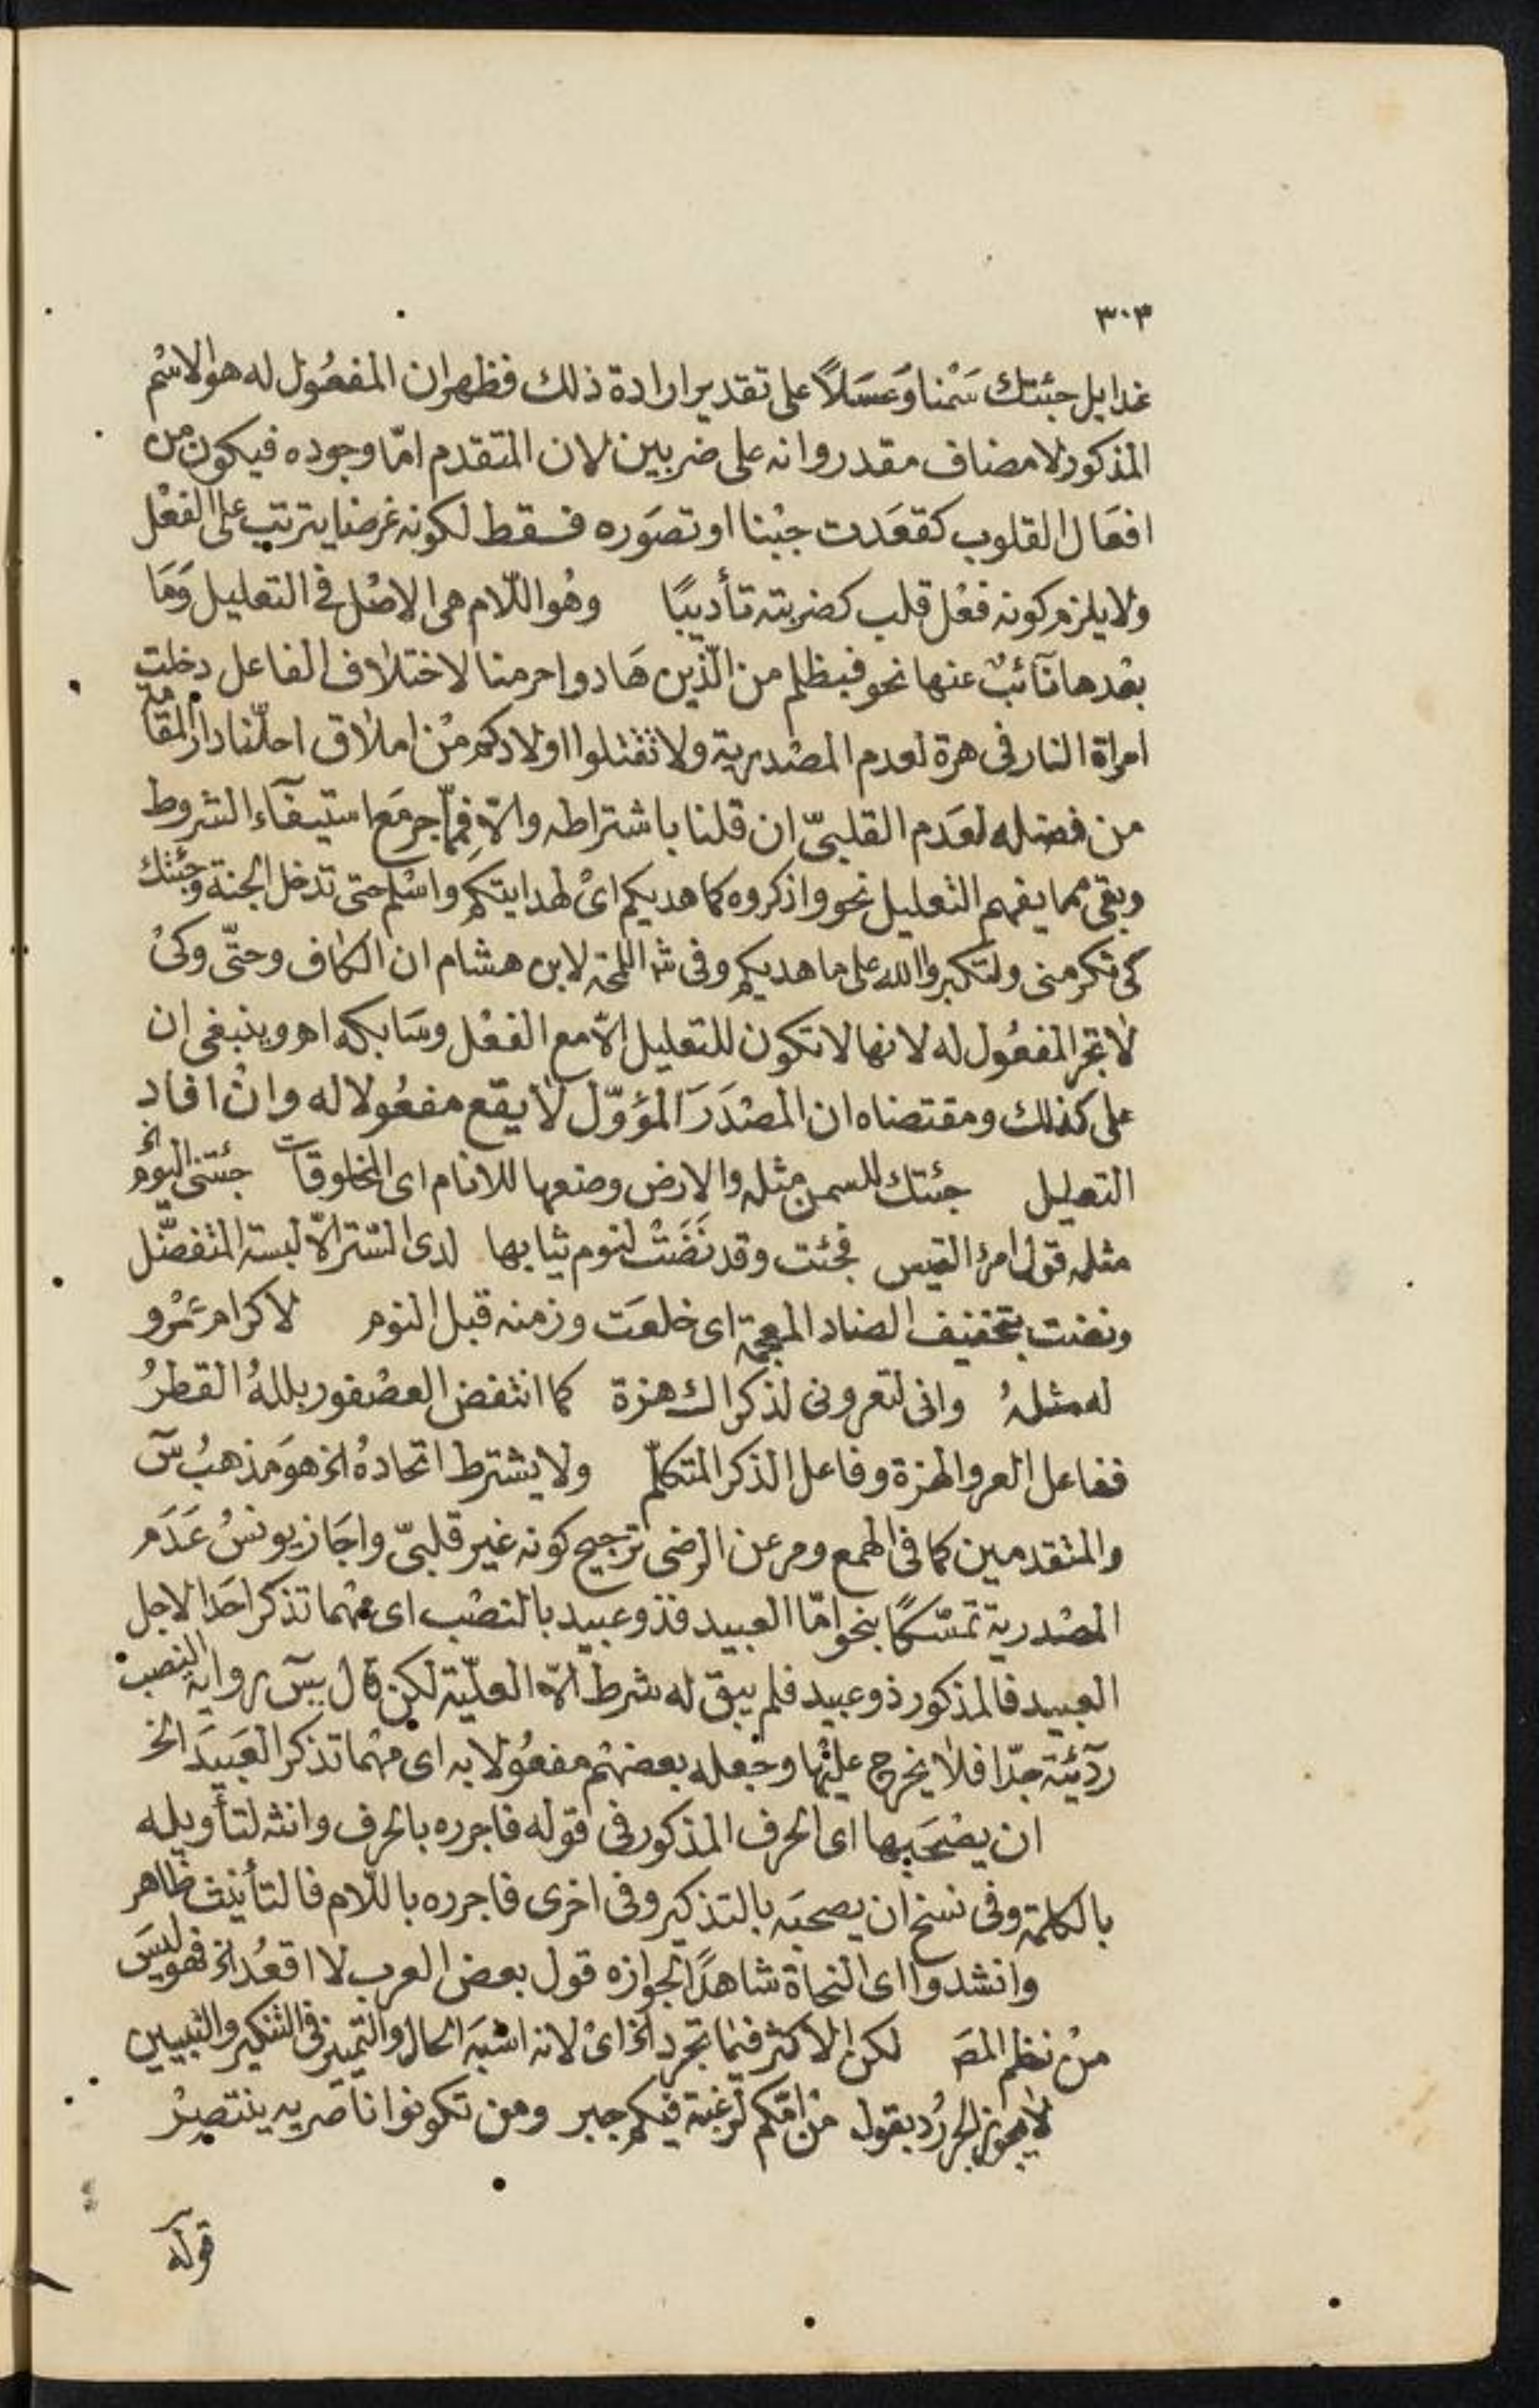 ٣٠٣
غدا بل جئتك سَمْنا وَعَسَلاً على تقدير ارادة ذلك فظهر ان المفعُول له هو الاسْم
المذكور لا مضاف مقدر وانه على ضربين لان المتقدم امّا وجوده فيكون من
افعَال القلوب كقعَدت جبْنا او تصَوره فقط لكونه غرضا يترتب على الفعْل
ولا يلزم كونه فعْل قلب كضربته تأديبًا وهُو اللّام هى الاصْل فى التعليل وَمَا
بعْدها نآئبٌ عنها نحو فبظلم من الّذين هَادوا حرمنا لاختلاف الفاعل دخلت
امراة النار فى هرة لعدم المصْدرية ولا تقتلوا اولادكم مْن املاق احلّنا دار المقامة
من فضله لعَدم القلبىّ ان قلنا باشتراطه والاّ فِممّا جر مَع استيفآء الشروط
وبقى مما يفهم التعليل نحو واذكروه كما هديكم اىْ لهدايتكم واسْلم حتى تدخل الجنة وجئتك
كى تكرمنى ولتكبروا الله على ما هديكم وفى شرح اللمحة لابن هشام ان الكاف وحتّى وكىْ
لا تجر المفعُول له لانها لا تكون للتعليل الاّ مع الفعْل وسَابكه اهـ وينبغى ان
على كذلك ومقتضاه ان المصْدَرَ المؤوّل لا يقع مفعُولا له وانْ افاد
التعليل جئتك للسمن مثله والارض وضعها للانام اى المخلوقات جئتنى اليوم الخ
مثله قول امرؤ القيس فجئت وقد نَضَتْ لنوم ثيابها لدى السّتر الاّ لبسة المتفضّل
ونضت بتخفيف الضاد المعجمة اى خلعَت وزمنه قبل النوم لاكرام عَمْرو
له مثلهُ وانى لتعرونى لذكراك هزة كما انتفض العصْفور بللهُ القطرُ
ففاعل العرو الهزة وفاعل الذكر المتكلّم ولا يشترط اتحادهُ الخ هوَ مَذهبُ سٓ
والمتقدمين كما فى الهمع ومر عن الرضى ترجيح كونه غير قلبىّ واجَاز يونسُ عَدَم
المصْدرية تمسّكًا بنحو امّا العبيد فذو عبيد بالنصْب اى مهْما تذكر احَدا لاجل
العبيد فالمذكور ذو عبيد فلم يبق له شرط الاّ العلّية لكن قال سٓ رواية النصب
ردٓيئة جدّا فلا يخرج عليْها وجعله بعضهُم مفعُولا به اى مهْما تذكر العَبيدَ الخ
ان يصْحَبها اى الحرف المذكور فى قوله فاجرره بالحرف وانثه لتأويله
بالكلمة وفى نسخ ان يصحبَه بالتذكير وفى اخرى فاجرره باللّام فالتأنيث ظاهر
وانشدوا اى النحاة شاهدًا لجوازه قول بعض العرب لا اقعُد الخ فهو ليسَ
منْ نظم المصَ لكن الاكثر فيْما تجرد الخ اىْ لانه اشبَه الحال والتمييز فى التنكير والتبيين
لا يجوز الجر رُد بقوله مْن امّكم لرغبة فيكم جبر ومن تكونوا ناصريه ينتصِرْ
قوله